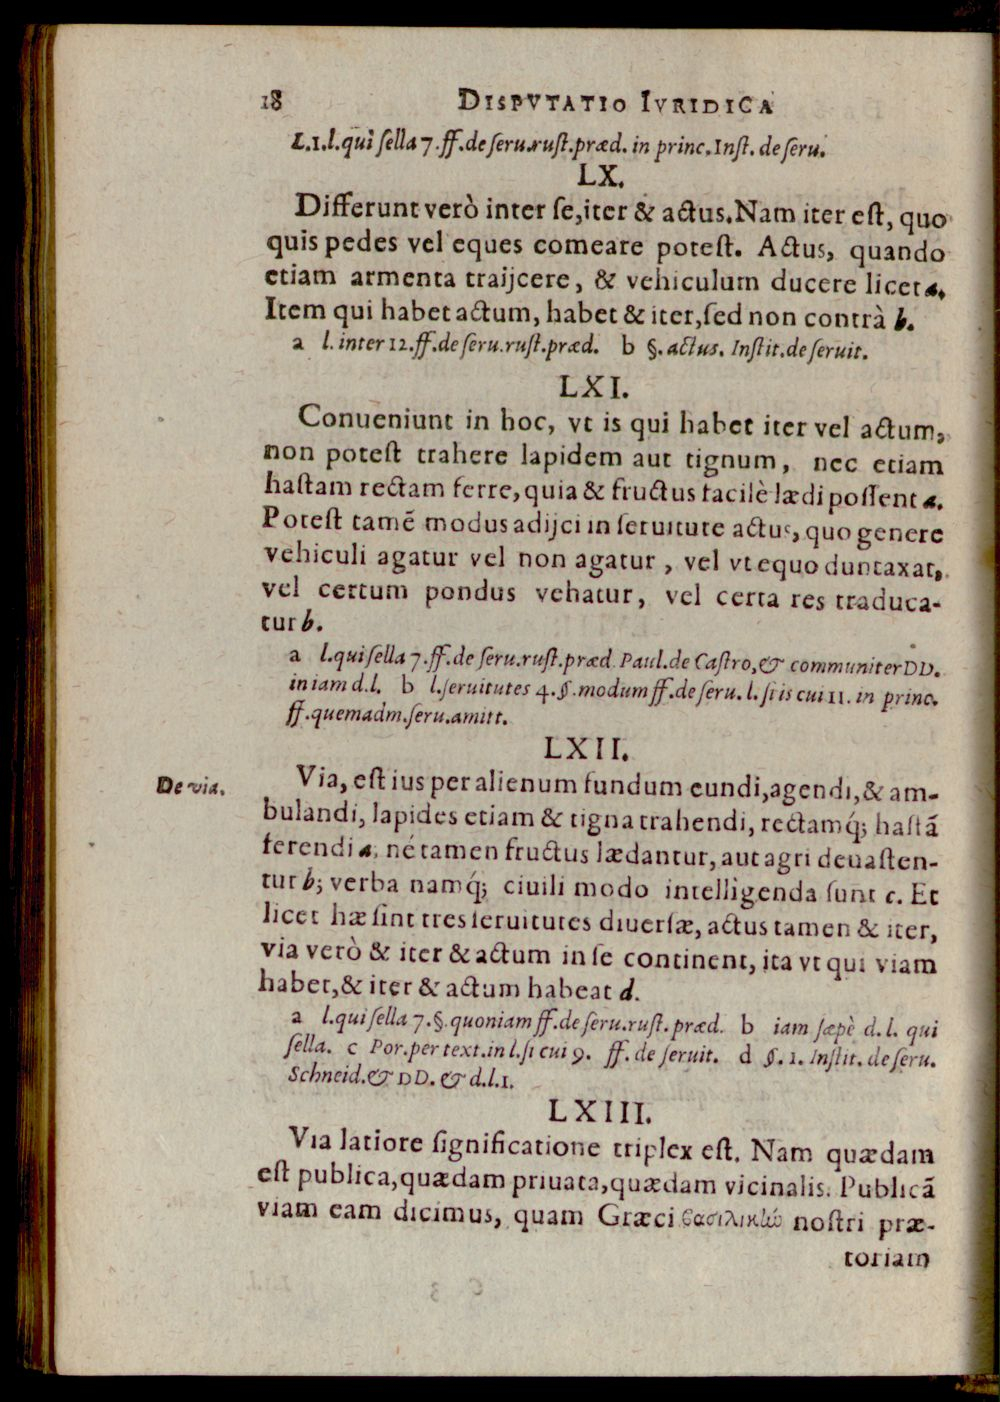 18 DISPVTATIO IVRIDICA
L.1.l.qui ſella 7.ff.de ſeru.ruſt.præd. in princ. Inſt. de ſeru.
LX.
Differunt verò inter ſe,iter & actus.Nam iter eſt, quo
quis pedes vel eques comeare poteſt. Actus, quando
etiam armenta traijcere, & vehiculum ducere licet a.
Item qui habet actum, habet & iter,ſed non contrà b.
a l. inter 12.ff.de ſeru.ruſt.præd. b §. actus. Inſtit.de ſeruit.
LXI.
Conueniunt in hoc, vt is qui habet iter vel actum,
non poteſt trahere lapidem aut tignum, nec etiam
haſtam rectam ferre,quia & fructus facilè lædi poſſent a.
Poteſt tamē modus adijci in ſeruitute actus, quo genere
vehiculi agatur vel non agatur, vel vt equo duntaxat,
vel certum pondus vehatur, vel certa res traduca-
tur b.
a l.qui ſella 7.ff.de ſeru.ruſt.præd. Paul.de Caſtro,& communiter DD.
in iam d.l. b l.ſeruitutes 4.§.modum ff.de ſeru. l. ſi is cui 11. in princ.
ff.quemadm.ſeru.amitt.
LXII.
De via.
Via, eſt ius per alienum fundum eundi,agendi,& am-
bulandi, lapides etiam & tigna trahendi, rectamq́; haſtā
ferendi a, né tamen fructus lædantur, aut agri deuaſten-
tur b; verba namq́; ciuili modo intelligenda ſunt c. Et
licet hæ ſint tres ſeruitutes diuerſæ, actus tamen & iter,
via verò & iter & actum in ſe continent, ita vt qui viam
habet,& iter & actum habeat d.
a l.qui ſella 7.§.quoniam ff.de ſeru.ruſt.præd. b iam ſæpè d. l. qui
ſella. c Por.per text.in l.ſi cui 9. ff. de ſeruit. d §. 1. Inſtit. de ſeru.
Schneid.& DD. & d.l.1.
LXIII.
Via latiore ſignificatione triplex eſt. Nam quædam
eſt publica,quædam priuata,quædam vicinalis. Publicā
viam eam dicimus, quam Græci noſtri præ-
toriam